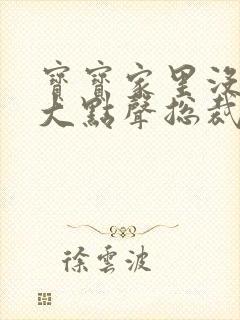 寶寶家里沒
大點聲總裁
徐雲波